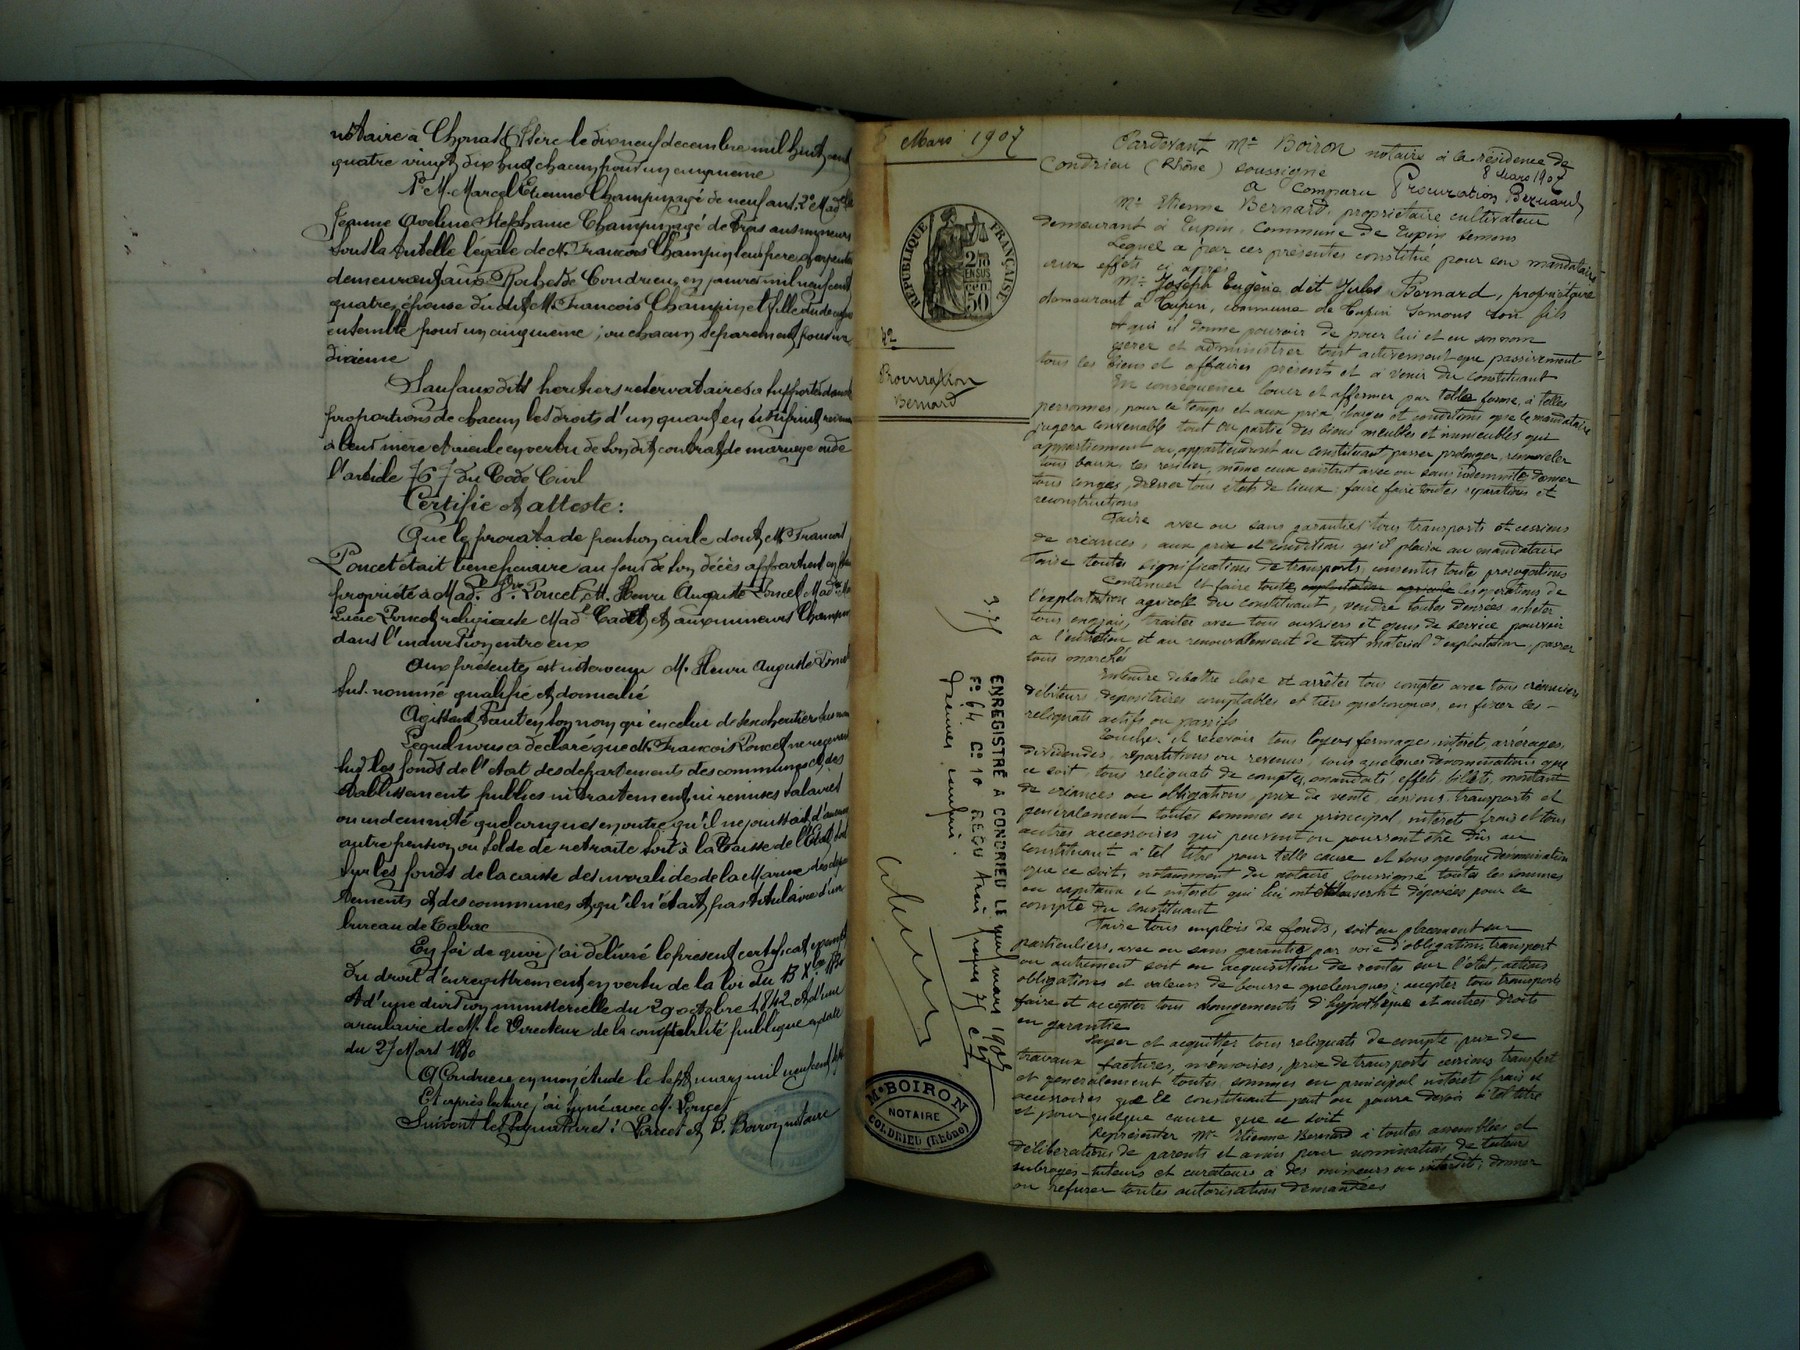 notaire à Chonas (Isère le dix neuf décembre mil huit cent
quatre vingt dix huit chacun pour un cinquième
1° M. Marcel Etienne Champin agé de neuf ans, 2° Madlle
Jeanne Aveline Stephanie Champin agé de trois ans mineurs
sous la tutelle légale de M. François Champin leur père, charpentier
demeurant aux Roches de Condrieu, en janvier mil neuf cent
quatre, épouse du dit M. François Champin et fille du de cujus
ensemble pour un cinquième, ou chacun séparement pour un
dixième
Sauf aux dits héritiers réservataires à supporter dans les
proportions de chacun les droits d'un quart en usufruit revenant
à leur mère et aieule en vertu de son dit contrat de mariage ou de
l'article 767 du Code Civil
Certifie et atteste:
Que le prorata de pension civile dont M. François
Poncet était bénéficiaire au jour de son décès appartient en pleine
propriété à Mad. Vve Poncet, M. Henri Auguste Poncet, Madlle
Lucie Poncet religieuse Made Cadet et aux mineurs Champin
dans l'indivision entre eux
Aux présentes est intervenu M. Henri Auguste Poncet
sus. nommé qualifié et domicilié
Agissant tant en son nom qu'en celui de ses cohéritiers sus nommés
Lequel nous a déclaré que M. François Poncet ne recevait
sur les fonds de l'état des départements des communes et des
établissements publics ni traitement, ni remises salaires
ou indemnité quelconques et en outre qu'il ne jouissait d'aucune
autre pension ou solde de retraite soit à la Caisse de l'Etat, soit
sur les fonds de la caisse des invalides de la Marine des départ
tements et des communes et qu'il n'était pas titulaire d'un
bureau de tabac
En foi de quoi j'ai délivré le présent certificat exempt
du droit d'enregistrement en vertu de la loi du
et d'une décision ministérielle du 29 octobre 1842 et d'une
circulaire de M. le Directeur de la comptabilité publique en date
du 27 Mars
A Condrieu en mon étude le sept mars mil neuf cent sept
Et après lecture j'ai signé avec M. Poncet
Suivent les signatures: Poncet et B. Boiron notaire
8 Mars 1907
RÉPUBLIQUE FRANÇAISE
2/10 EN SUS
cen 50
42
Procuration
Bernard
3.75
ENREGISTRÉ A CONDRIEU LE quinze mars 1907
F° 64 C° 10 REÇU trois francs 75 cts
Décimes compris.
Me BOIRON
NOTAIRE
CONDRIEU (Rhône)
Pardevant Me Boiron notaire à la résidence de
Condrieu (Rhône) soussigné
8 Mars 1907
a comparu Procuration Bernard
Mr Etienne Bernard, propriétaire cultivateur
demeurant à Tupin, commune de Tupin Semons
Lequel a par ces présentes constitué pour son mandataire
aux effets ci après
Mr Joseph Eugène dit Jules Bernard, propriétaire
demeurant à Tupin, commune de Tupin Semons son fils
A qui il donne pouvoir de pour lui et en son nom
gérer et administrer tant activement que passivement
tous les biens et affaires présents et à venir du constituant
En conséquence louer et affermer par telle forme, à telles
personnes, pour le temps et aux prix charges et conditions que le mandataire
jugera convenable tout ou partie des biens meubles et immeubles qui
appartiennent ou appartiendront au constituant passer prolonger, renouveler
tous baux, les résilier, même ceux existant avec ou sans indemnité donner
tous congés, dresser tous états de lieux; faire faire toutes réparations et
reconstructions
Faire avec ou sans garantie tous transports et cessions
de créances, aux prix et conditions qu'il plaira au mandataire
Faire toutes significations de transports, consentir toute prorogations
Continuer et faire toute exploitation agricole les opérations de
l'exploitation agricole du constituant, vendre toutes denrées, acheter
tous engrais, traiter avec tous ouvriers et gens de service pourvoir
à l'entretien et au renouvellement de tout matériel d'exploitation, passer
tous marchés
Entendre débattre clore et arrêter tous comptes avec tous créanciers
débiteurs, dépositaires comptables et tiers quelconques, en fixer les
reliquats actifs ou passifs
Toucher et recevoir tous loyers fermages, intérêt, arrérages,
dividendes, répartitions ou revenus, sous quelques dénominations que
ce soit, tous reliquats de comptes, mandats, effets, billets, montant
de créances ou obligations, prix de vente, cessions, transports et
généralement toutes sommes en principal, intérêt frais et tous
autres accessoires qui peuvent ou pourront être dûs au
constituant à tel titre pour telle cause et sous quelque dénomination
que ce soit, notamment du notaire soussigné toutes les sommes
en capitaux et intérêt qui lui ont été ou seront déposées pour le
compte du constituant
Faire tous emplois de fonds, soit en placement sur
particuliers, avec ou sans garantie par voie d'obligation, transport
ou autrement soit en acquisition de rentes sur l'état, actions
obligations et valeurs de bourse quelconques; accepter tous transports
faire et accepter tous délogements d'hypothèque et autres droits
en garantie
Payer et acquitter tous reliquats de compte, prix de
travaux factures, mémoires, prix de transports cessions transfert
et généralement toutes sommes en principal intérêt frais et
accessoires que le constituant peut ou pourra devoir à tel titre
et pour quelque cause que ce soit
Représenter Mr Etienne Bernard à toutes assemblées et
délibérations de parents et amis pour nomination de tuteurs
subrogés-tuteurs et curateurs à des mineurs ou interdits, donner
ou refuser toutes autorisations demandées